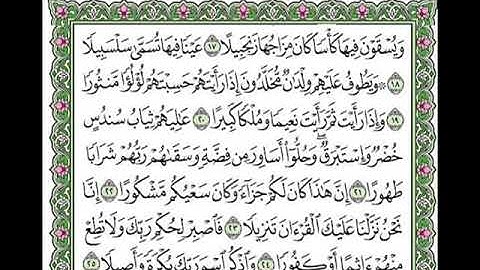 وَيُسْقَوْنَ فِيهَا كَأْسًا كَانَ مِزَاجُهَا زَنجَبِيلًا ١٧ عَيْنًا فِيهَا تُسَمَّىٰ سَلْسَبِيلًا
١٨ ۞ وَيَطُوفُ عَلَيْهِمْ وِلْدَٰنٌ مُّخَلَّدُونَ إِذَا رَأَيْتَهُمْ حَسِبْتَهُمْ لُؤْلُؤًا مَّنثُورًا
١٩ وَإِذَا رَأَيْتَ ثَمَّ رَأَيْتَ نَعِيمًا وَمُلْكًا كَبِيرًا ٢٠ عَٰلِيَهُمْ ثِيَابُ سُندُسٍ
خُضْرٌ وَإِسْتَبْرَقٌ ۖ وَحُلُّوٓا۟ أَسَاوِرَ مِن فِضَّةٍ وَسَقَىٰهُمْ رَبُّهُمْ شَرَابًا
طَهُورًا ٢١ إِنَّ هَٰذَا كَانَ لَكُمْ جَزَآءً وَكَانَ سَعْيُكُم مَّشْكُورًا ٢٢ إِنَّا
نَحْنُ نَزَّلْنَا عَلَيْكَ ٱلْقُرْءَانَ تَنزِيلًا ٢٣ فَٱصْبِرْ لِحُكْمِ رَبِّكَ وَلَا تُطِعْ
مِنْهُمْ ءَاثِمًا أَوْ كَفُورًا ٢٤ وَٱذْكُرِ ٱسْمَ رَبِّكَ بُكْرَةً وَأَصِيلًا ٢٥